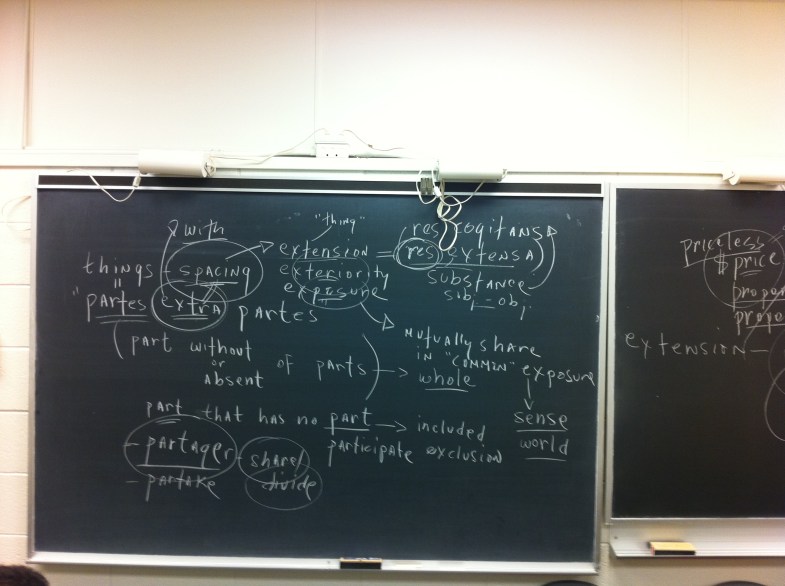 with
"thing"
res cogitans
things - spacing
extension = res extensa
exteriority
exposure
substance
sub - obj.
"partes extra partes
(part without
or
absent
of parts)
→
mutually share
in "common" exposure
whole
sense
world
part that has no part → included
- partager - share/
participate exclusion
- partake
divide
priceless
$ price
proper
prope
extension —